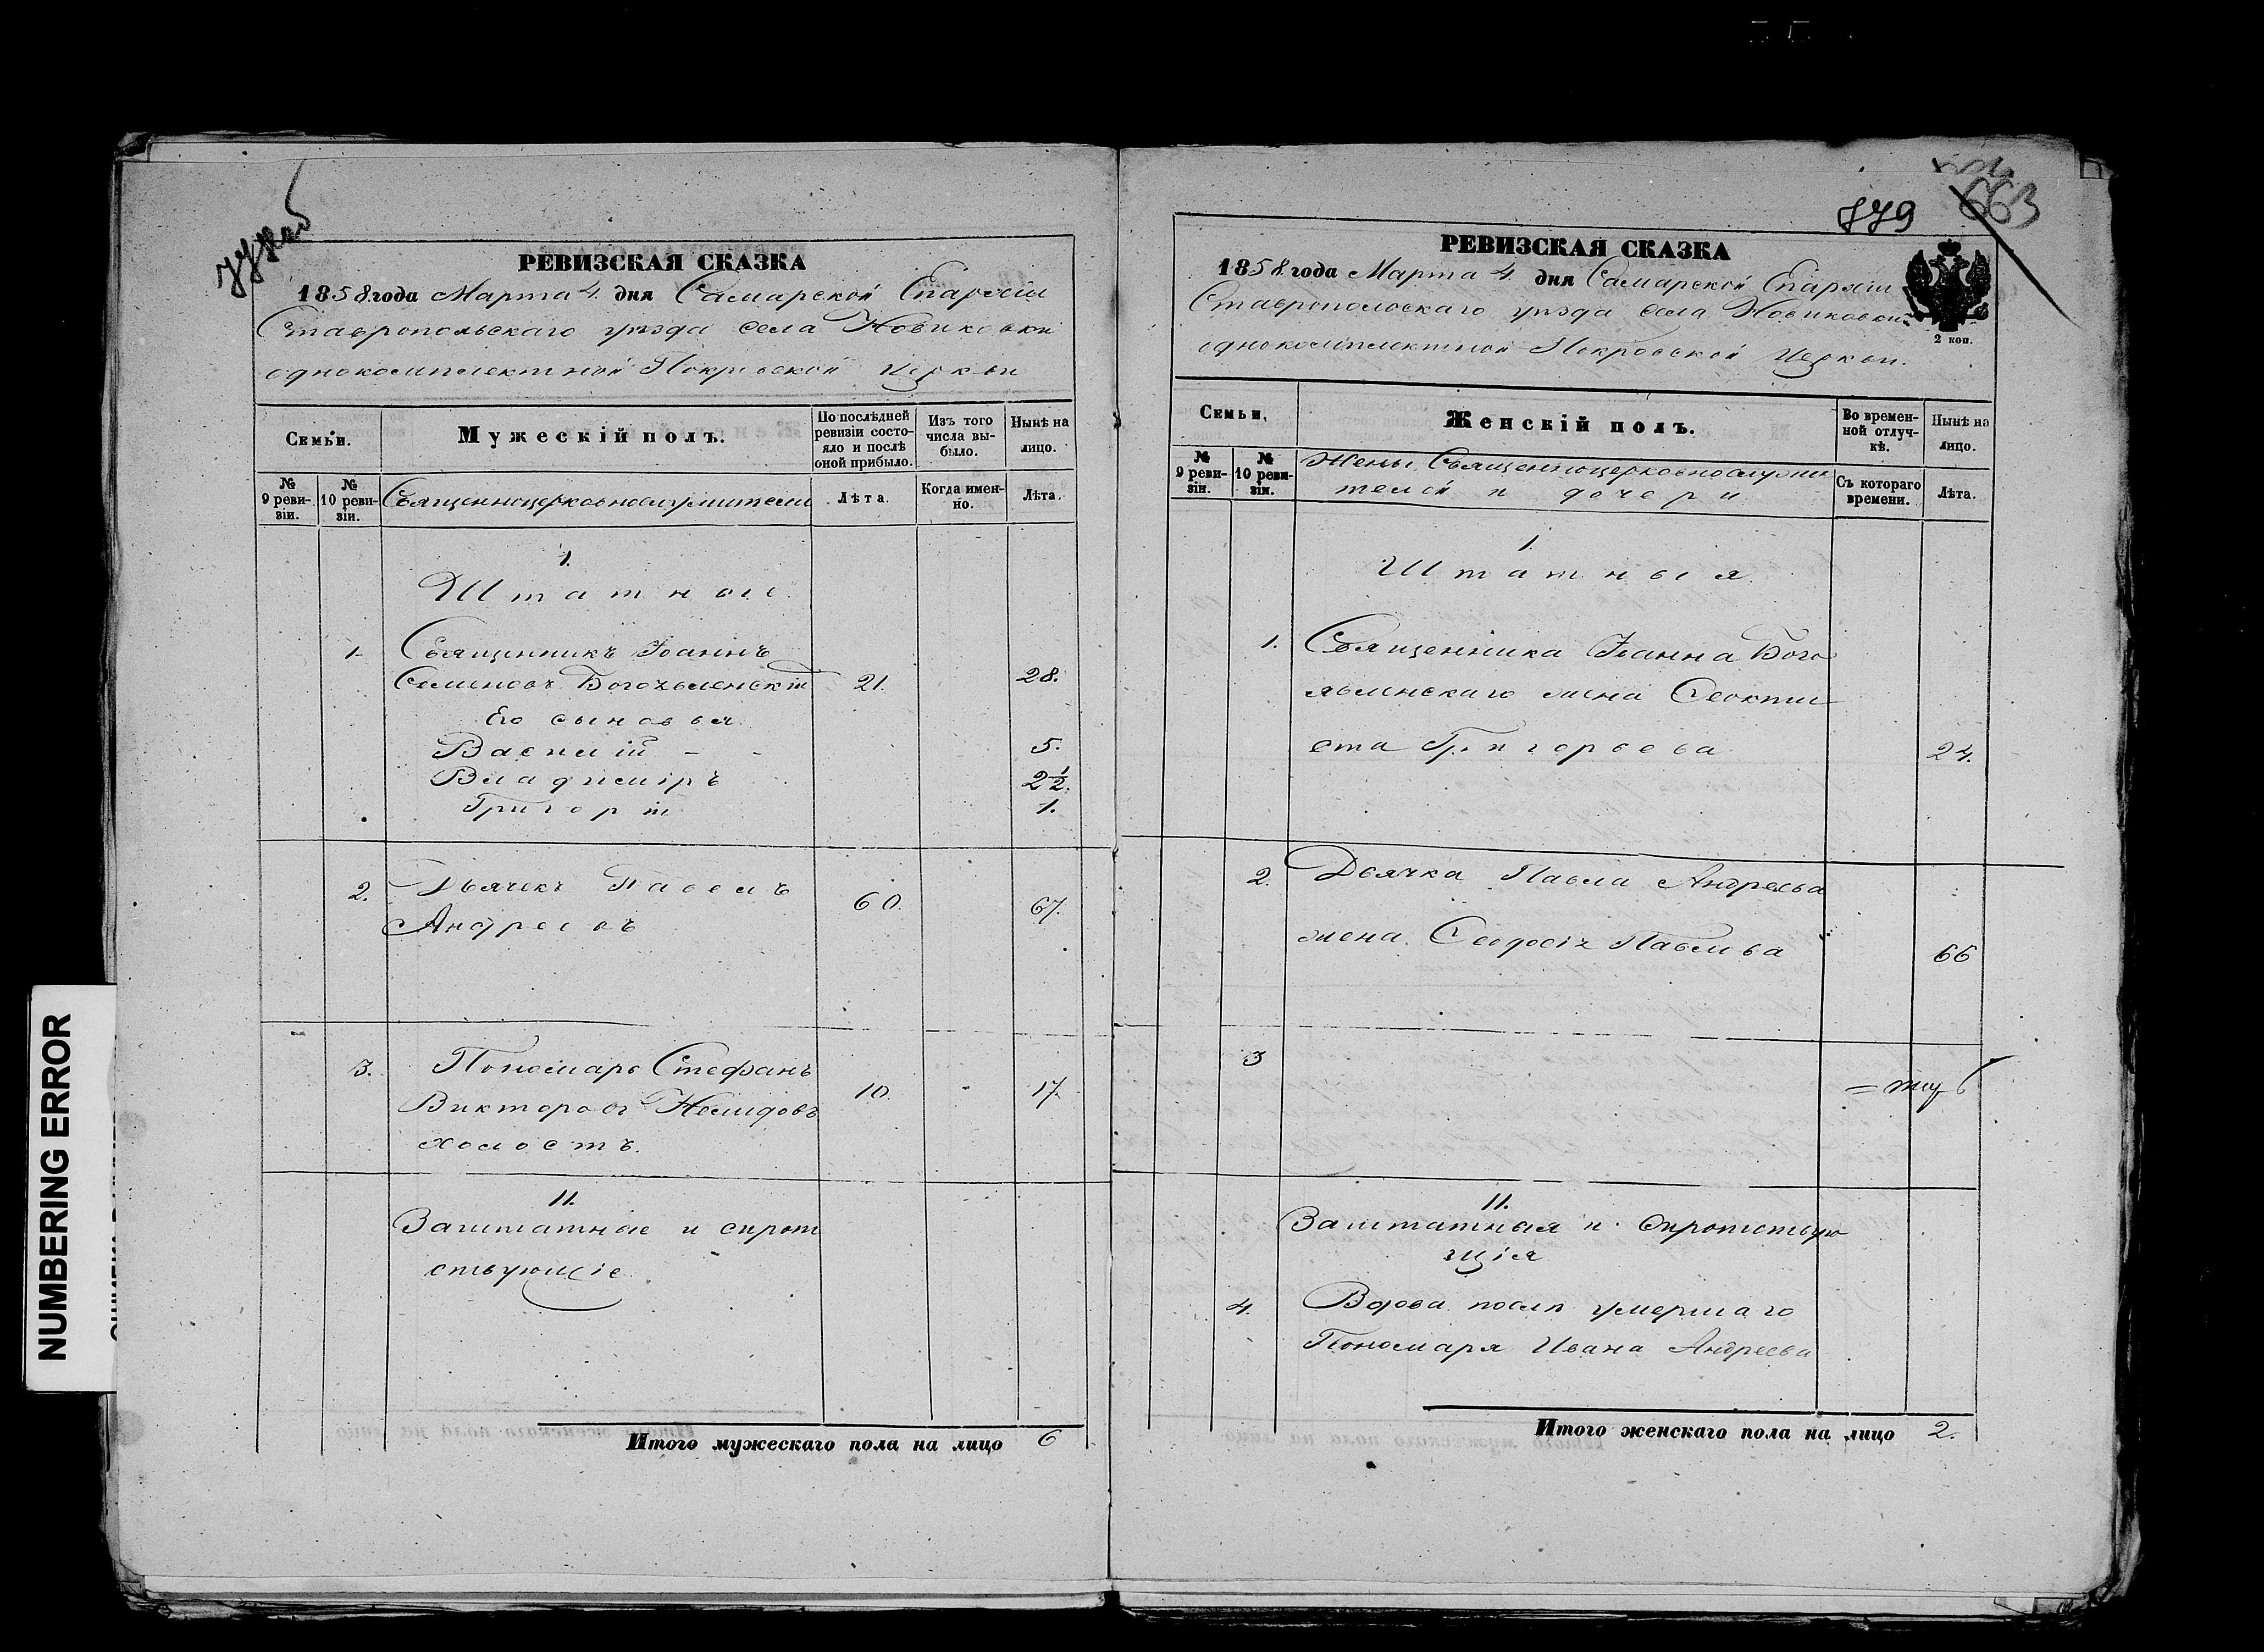 NUMBERING ERROR
РЕВИЗСКАЯ СКАЗКА
1858 года Марта 4. дня Самарской Епархіи
Ставропольскаго уѣзда села Новиковки
однокомплектной Покровской церкви
Семьи.
Мужескій полъ.
По послѣдней ревизіи состояло и послѣ оной прибыло.
Изъ того числа выбыло.
Нынѣ на лицо.
№ 9 ревизіи.
№ 10 ревизіи.
Священноцерковнослужители
Лѣта.
Когда именно.
Лѣта.
1.
Штатные.
1. Священникъ Іоаннъ
Семеновъ Богоявленскій 21. 28.
Его сыновья
Василій – - 5.
Владиміръ 2 1/2.
Григорій 1.
2. Дьячекъ Павелъ
Андреевъ 60. 67.
3. Пономарь Стефанъ
Викторовъ 10. 17.
холостъ.
11.
Заштатные и сирот
ствующіе
Итого мужескаго пола на лицо 6
879
663
РЕВИЗСКАЯ СКАЗКА
1858. года Марта 4. дня Самарской Епархіи
Ставропольскаго уѣзда села Новиковки
однокомплектной Покровской Церкви.
2 коп.
Семьи.
Женскій полъ.
Во временной отлучкѣ.
Нынѣ на лицо.
№ 9 ревизіи.
№ 10 ревизіи.
Жены Священноцерковнослужи
телей и дочери
Съ котораго времени.
Лѣта.
1.
Штатныя
1. Священника Іоанна Бого
явленскаго жена Феокти
ста Григорьева 24.
2. Дьячка Павла Андреева
жена Феодосія Павлова 66
3
11.
Заштатныя и сиротствую
щія
4. Вдова послѣ умершаго
Пономаря Ивана Андреева
Итого женскаго пола на лицо 2.